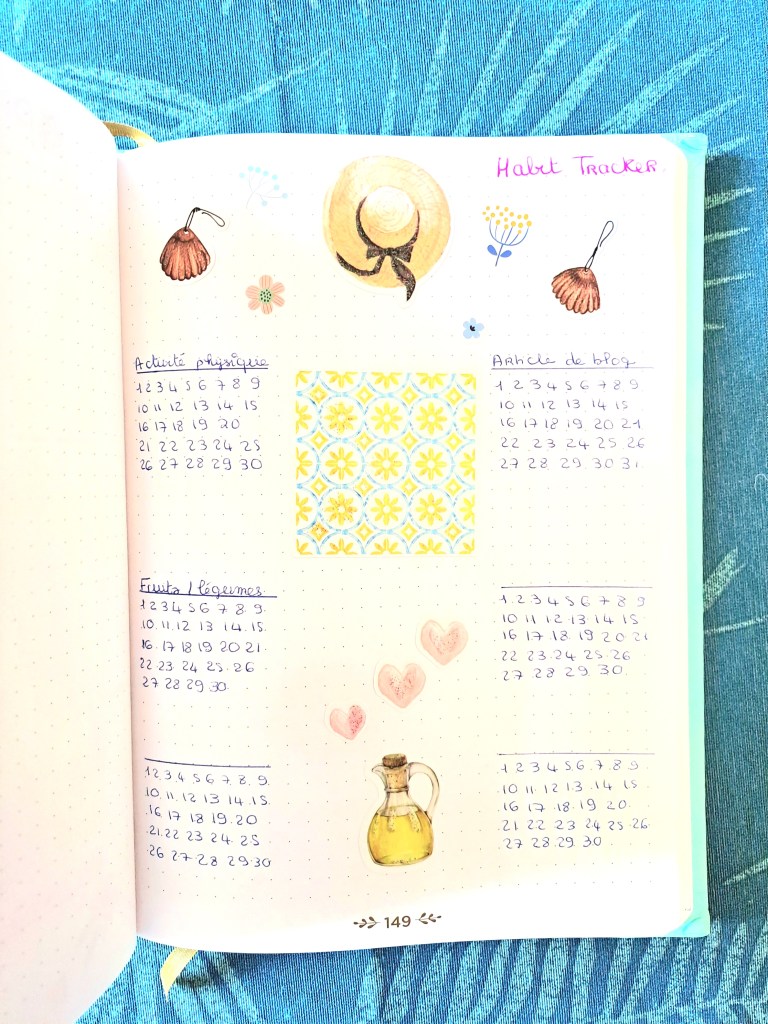 Habit Tracker
Activité physique
1 2 3 4 5 6 7 8 9
10 11 12 13 14 15
16 17 18 19 20
21 22 23 24 25
26 27 28 29 30
Article de blog
1 2 3 4 5 6 7 8 9
10 11 12 13 14 15
16 17 18 19 20 21
22 23 24 25 26
27 28 29 30 31
Fruits / légumes
1 2 3 4 5 6 7 8 9
10 11 12 13 14 15
16 17 18 19 20 21
22 23 24 25 26
27 28 29 30
1 2 3 4 5 6 7 8 9
10 11 12 13 14 15
16 17 18 19 20 21
22 23 24 25 26
27 28 29 30
1 2 3 4 5 6 7 8 9
10 11 12 13 14 15
16 17 18 19 20
21 22 23 24 25
26 27 28 29 30
1 2 3 4 5 6 7 8 9
10 11 12 13 14 15
16 17 18 19 20
21 22 23 24 25 26
27 28 29 30
149